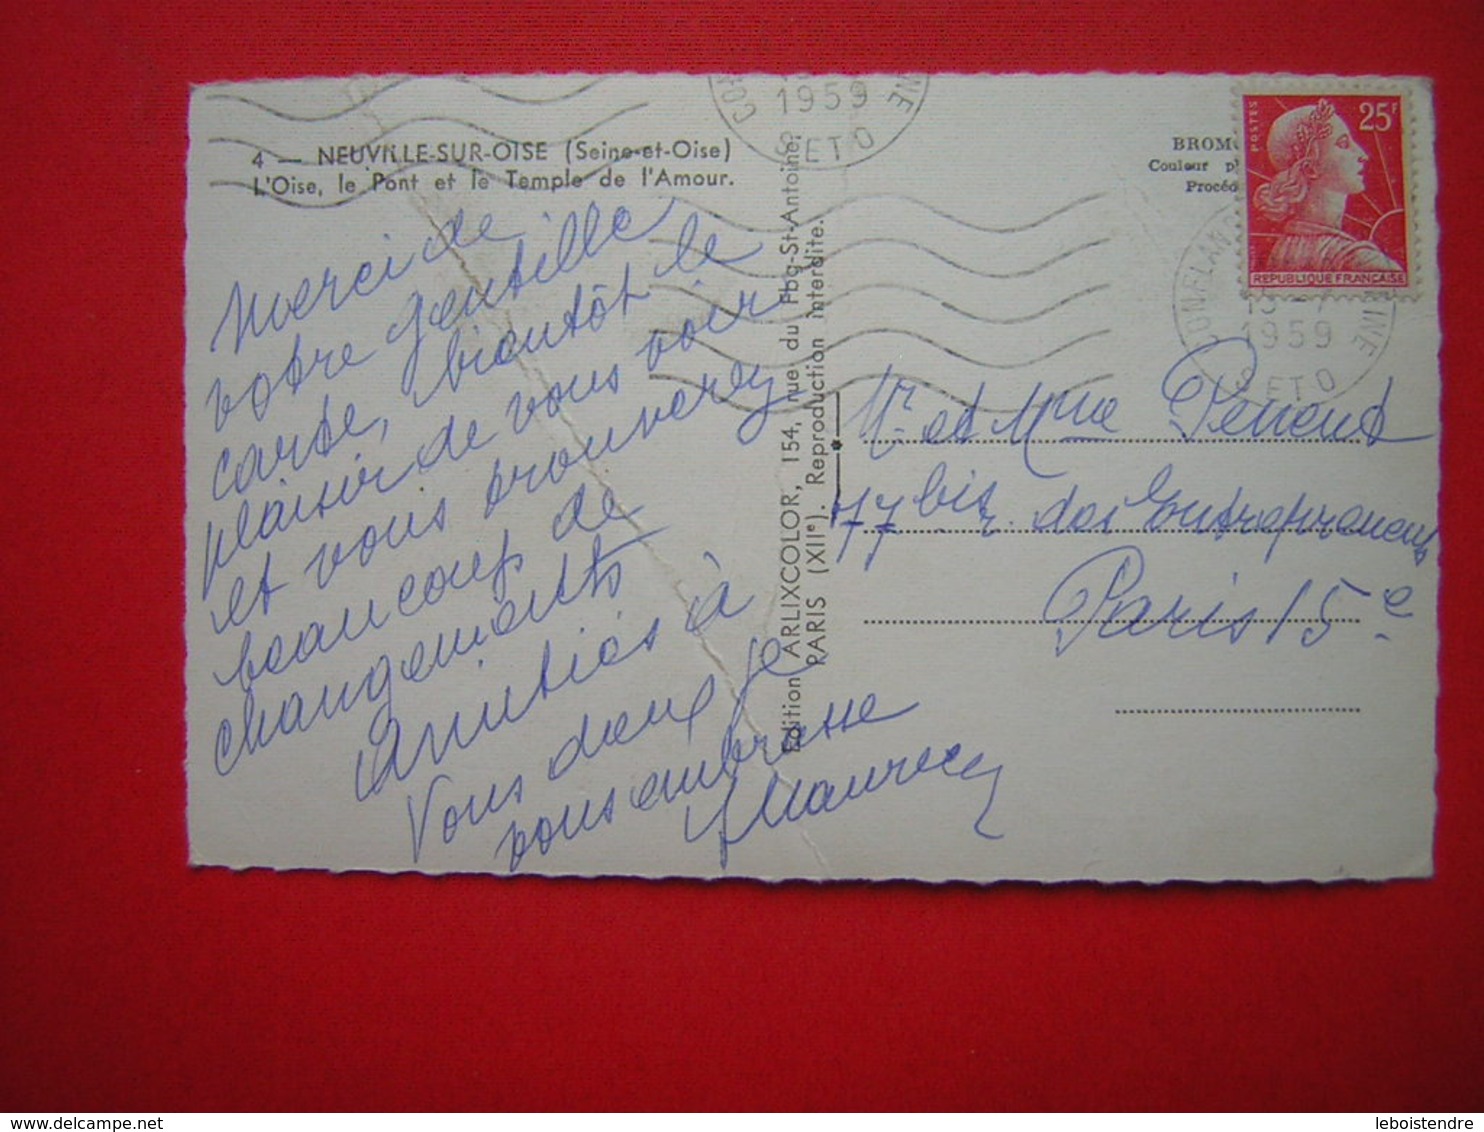 4 — NEUVILLE-SUR-OISE (Seine-et-Oise)
L'Oise, le Pont et le Temple de l'Amour.
Merci de
votre gentille
carte, bientôt le
plaisir de vous voir
et vous trouverez
beaucoup de
changements
Amitiés à
Vous deux je
vous embrasse
Edition ARLIXCOLOR, 154, rue du Fbg-St-Antoine,
PARIS (XIIe). Reproduction interdite.
1959
S ET O
BROM
Couleur p
Procéd
POSTES
25F
REPUBLIQUE FRANÇAISE
CONFLANS
INE
1959
S ET O
Mr et Mme
77 bis r. des Entrepreneurs
Paris 15e
leboistendre